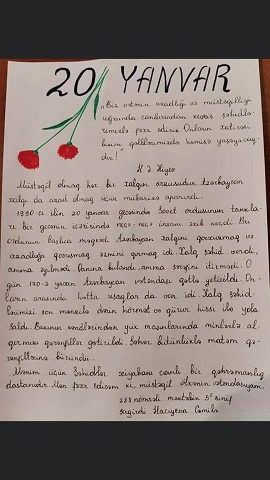 20 YANVAR
„Biz vətənin azadlığı və müstəqilliyi
uğrunda canlarından keçmiş şəhidlə-
rimizlə fəxr edirik. Onların xatirəsi
bizim qəlblərimizdə həmişə yaşayacaq-
dır!"
H. Ə. Əliyev
Müstəqil olmaq hər bir xalqın arzusudur. Azərbaycan
xalqı da azad olmaq üçün mübarizə aparırdı.
1990-cı ilin 20 yanvar gecəsində Sovet ordusunun tankla-
rı bir gecənin içərisində neçə-neçə insanı əzib keçdi. Bu
ordunun başlıca məqsədi Azərbaycan xalqını qorxutmaq və
azadlığa qovuşmaq əzmini qırmaq idi. Xalq şəhid verdi,
amma əyilmədi. Qanına bulandı, amma sevgini itirmədi. O
gün 170-ə yaxın Azərbaycan vətəndaşı qətlə yetirildi. On-
ların arasında hətta uşaqlar da var idi. Xalq şəhid-
lərimizi son mənzilə dərin hörmət və qürur hissi ilə yola
saldı. Bakının kəndlərindən yük maşınlarında minlərlə al-
qırmızı qərənfillər gətirildi. Şəhər bütünlüklə matəm qə-
rənfillərinə büründü.
Mənim üçün Şəhidlər xiyabanı canlı bir qəhrəmanlıq
dastanıdır. Mən fəxr edirəm ki, müstəqil ölkəmin vətəndaşıyam.
288 nömrəli məktəbin 5ᵇ sinif
şagirdi Hacıyeva Cəmilə